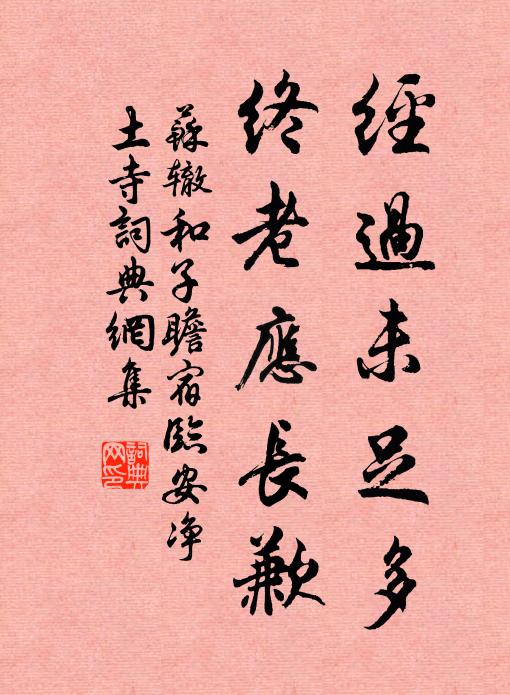 經過未足多
終老應長歉
蘇辙和子瞻宿臨安净
土寺詞典網集
詞典网印